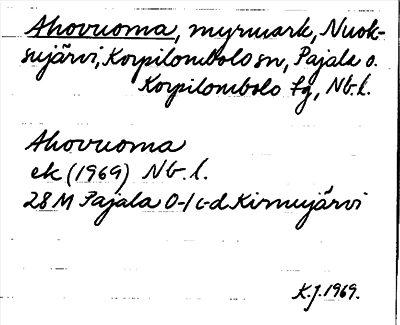 Ahovuoma, myrmark, Nuok-
sujärvi, Korpilombolo sn, Pajala o.
Korpilombolo tg, Nb. l.
Ahovuoma
ek (1969) Nb. l.
28 M Pajala 0-1 c-d Kirnujärvi
K.J. 1969.